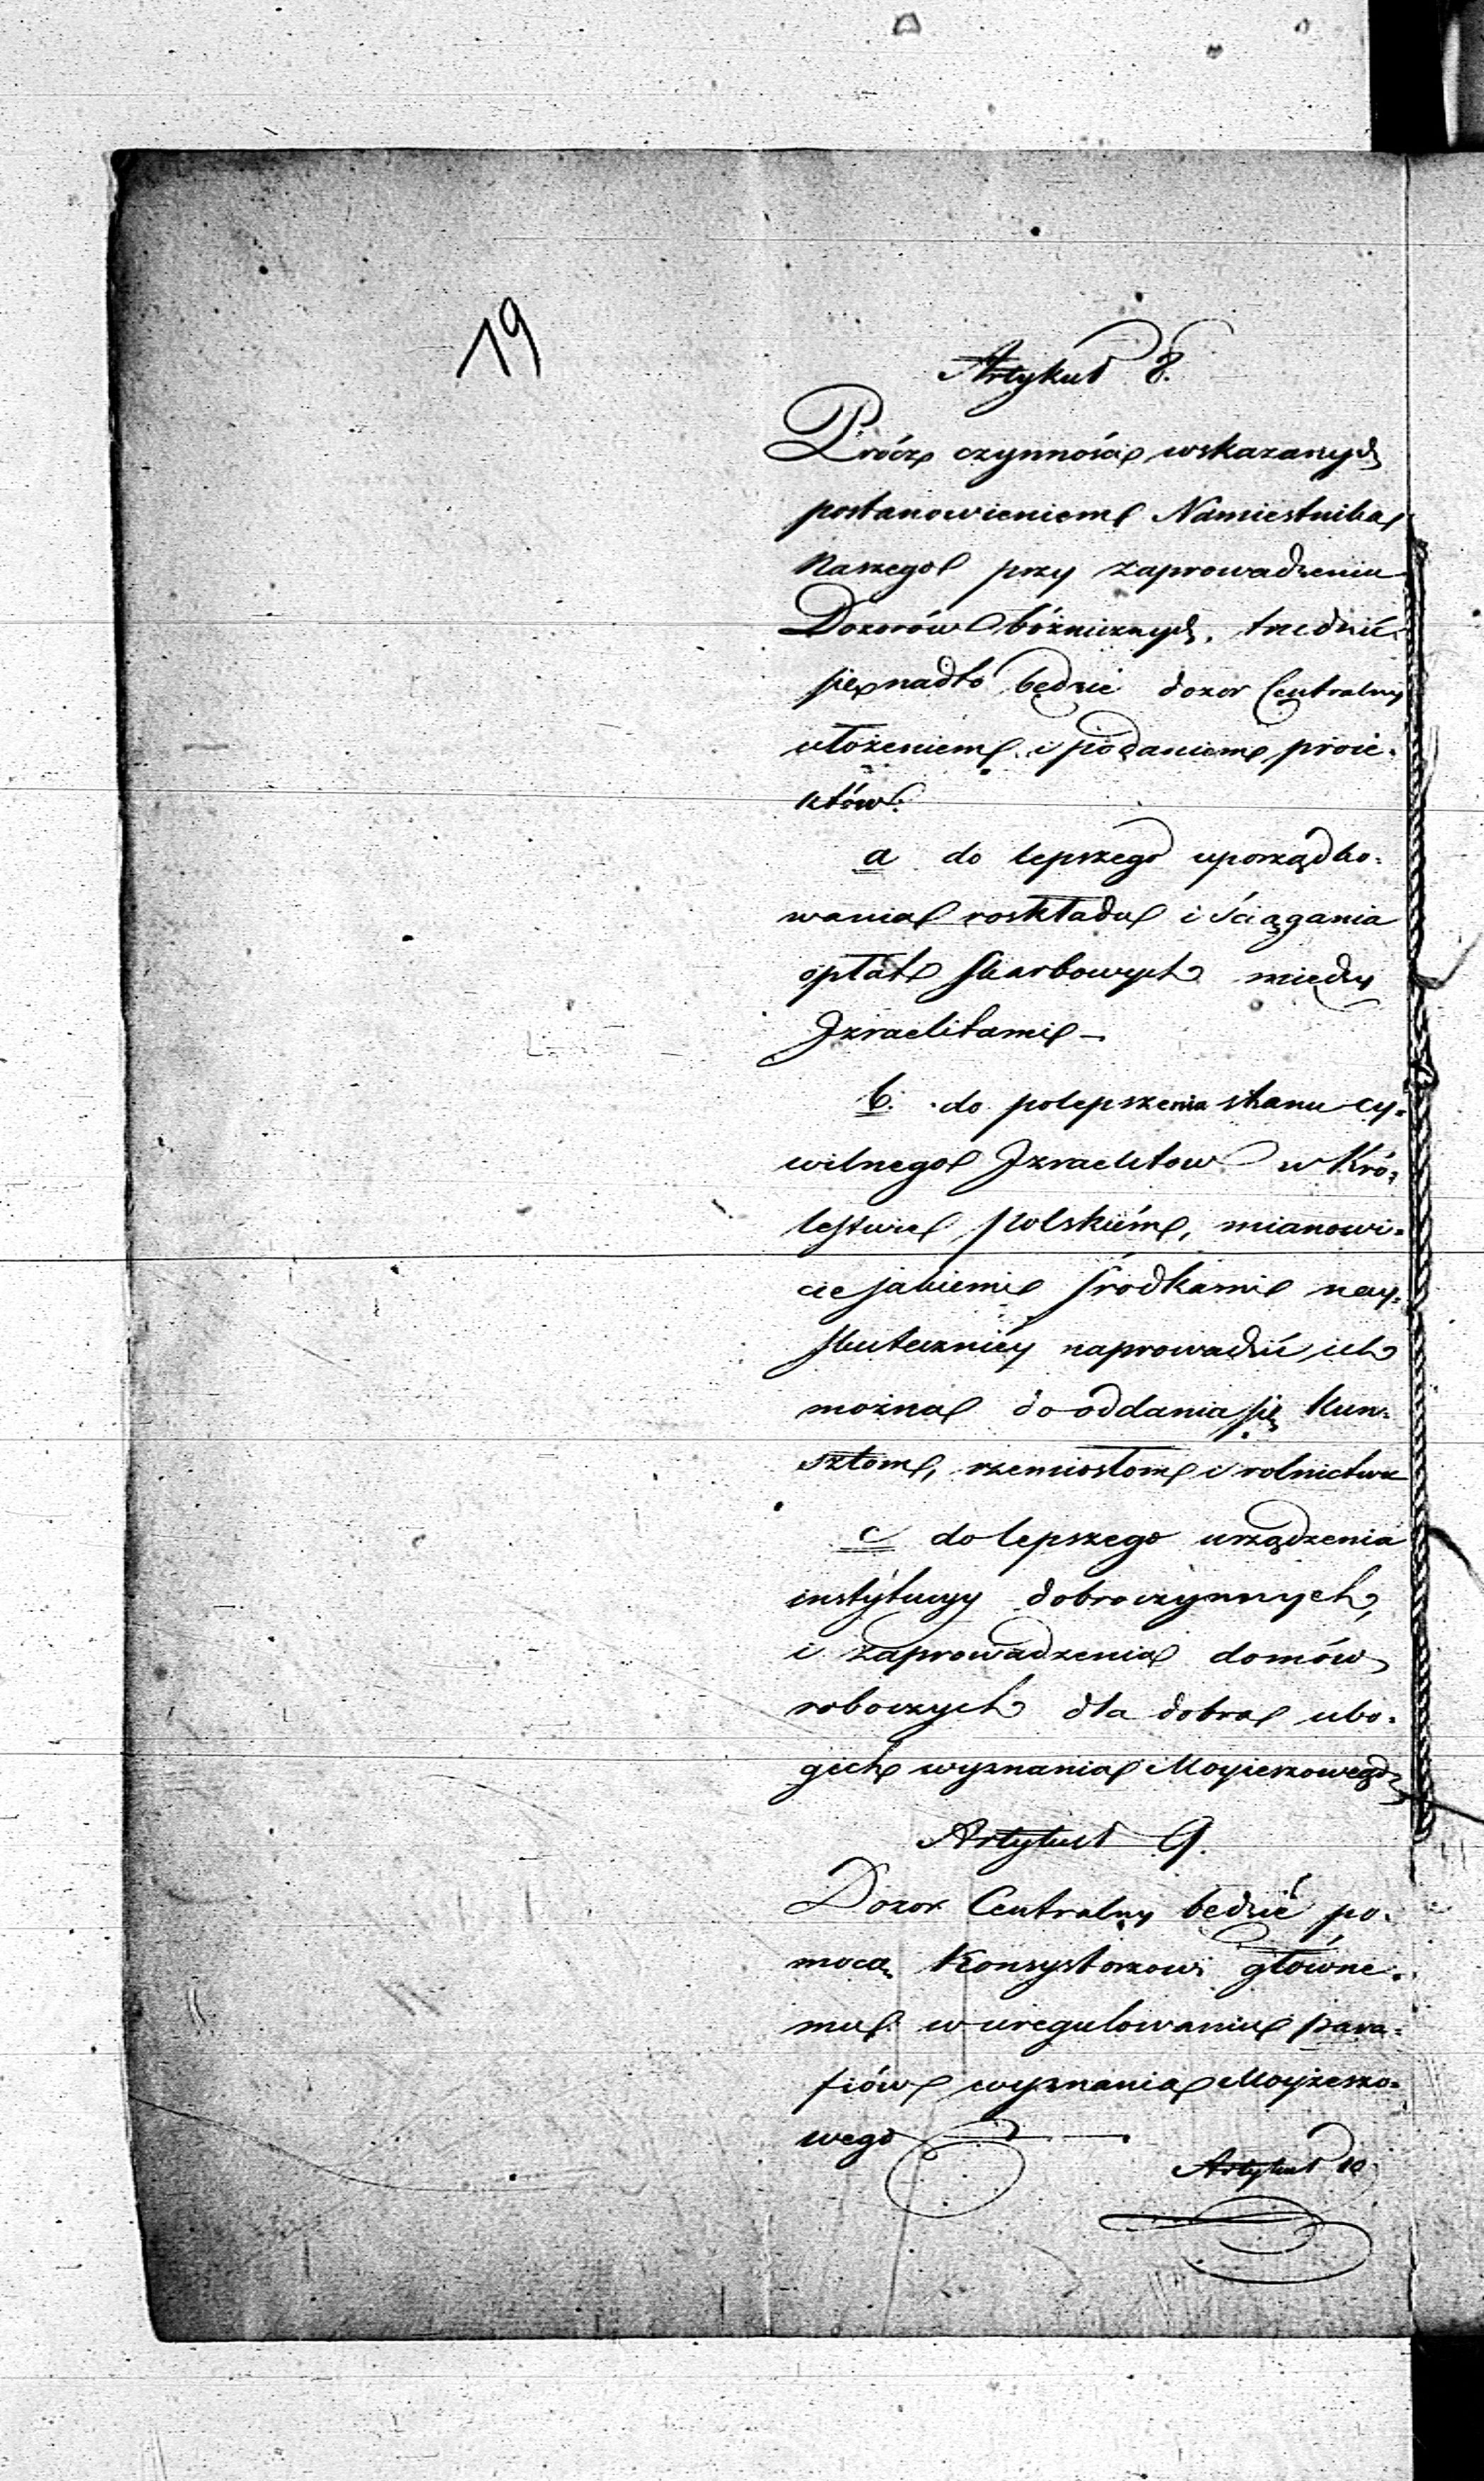 19
Artykuł 8.
Prócz czynności wskazanych
postanowieniem Namiestnika
Naszego przy zaprowadzeniu
Dozorów bóżnicznych, trudnić
się nadto będzie dozor Centralny
ułożeniem i podaniem proie-
któw:
a do lepszego uporządko-
wania roskładu i ściągania
opłat skarbowych między
Izraelitami –
b. do polepszenia stanu cy-
wilnego Izraelitow w Kró-
lestwie Polskiém, mianowi-
cie jakiemi środkami nay-
skuteczniéy naprowadzić ich
można do oddania się kun-
sztom, rzemiosłom i rolnictwu
c do lepszego urządzenia
instytucyy dobroczynnych,
i zaprowadzenia domów
roboczych dla dobra ubo-
gich wyznania Moyżeszowego
Artykuł 9.
Dozor Centralny będzie po-
mocą Konsystorzowi główne-
mu w uregulowaniu para-
fiów wyznania Moyżeszo-
wego
Artykuł 10